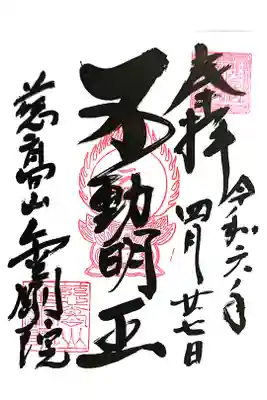 奉拝
令和六年
四月廿七日
不動明王
慈高山
金剛院